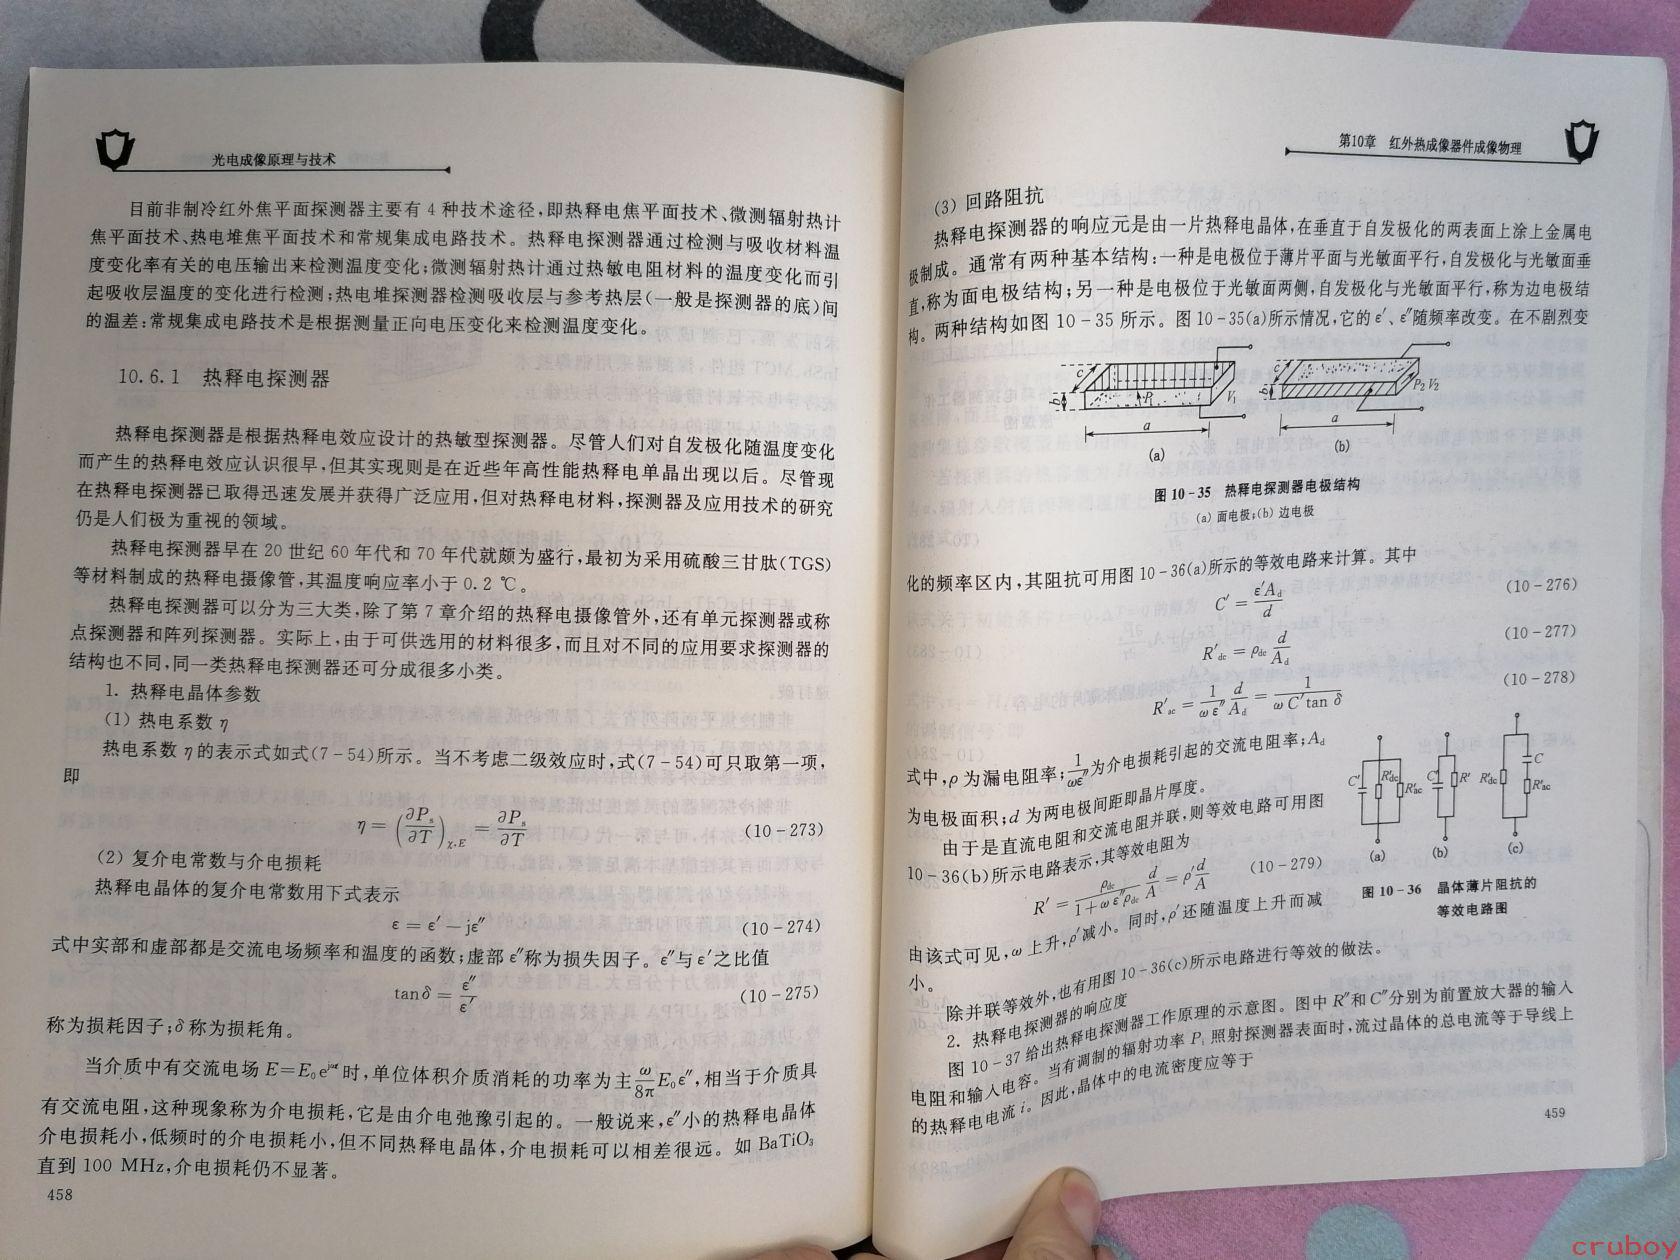 光电成像原理与技术
目前非制冷红外焦平面探测器主要有 4 种技术途径,即热释电焦平面技术、微测辐射热计
焦平面技术、热电堆焦平面技术和常规集成电路技术。热释电探测器通过检测与吸收材料温
度变化率有关的电压输出来检测温度变化;微测辐射热计通过热敏电阻材料的温度变化而引
起吸收层温度的变化进行检测;热电堆探测器检测吸收层与参考热层(一般是探测器的底)间
的温差;常规集成电路技术是根据测量正向电压变化来检测温度变化。
10.6.1 热释电探测器
热释电探测器是根据热释电效应设计的热敏型探测器。尽管人们对自发极化随温度变化
而产生的热释电效应认识很早,但其实现则是在近些年高性能热释电单晶出现以后。尽管现
在热释电探测器已取得迅速发展并获得广泛应用,但对热释电材料,探测器及应用技术的研究
仍是人们极为重视的领域。
热释电探测器早在 20 世纪 60 年代和 70 年代就颇为盛行,最初为采用硫酸三甘肽(TGS)
等材料制成的热释电摄像管,其温度响应率小于 0.2 ℃。
热释电探测器可以分为三大类,除了第 7 章介绍的热释电摄像管外,还有单元探测器或称
点探测器和阵列探测器。实际上,由于可供选用的材料很多,而且对不同的应用要求探测器的
结构也不同,同一类热释电探测器还可分成很多小类。
1. 热释电晶体参数
(1) 热电系数 η
热电系数 η 的表示式如式(7-54)所示。当不考虑二级效应时,式(7-54)可只取第一项,
即
η = (∂Ps/∂T)χ,E = ∂Ps/∂T (10-273)
(2) 复介电常数与介电损耗
热释电晶体的复介电常数用下式表示
ε = ε′ − jε″ (10-274)
式中实部和虚部都是交流电场频率和温度的函数;虚部 ε″称为损失因子。ε″与 ε′之比值
tanδ = ε″/ε′ (10-275)
称为损耗因子;δ 称为损耗角。
当介质中有交流电场 E=E₀e^jωt 时,单位体积介质消耗的功率为主 ω/8π E₀ε″,相当于介质具
有交流电阻,这种现象称为介电损耗,它是由介电弛豫引起的。一般说来,ε″小的热释电晶体
介电损耗小,低频时的介电损耗小,但不同热释电晶体,介电损耗可以相差很远。如 BaTiO₃
直到 100 MHz,介电损耗仍不显著。
458
第10章 红外热成像器件成像物理
(3) 回路阻抗
热释电探测器的响应元是由一片热释电晶体,在垂直于自发极化的两表面上涂上金属电
极制成。通常有两种基本结构:一种是电极位于薄片平面与光敏面平行,自发极化与光敏面垂
直,称为面电极结构;另一种是电极位于光敏面两侧,自发极化与光敏面平行,称为边电极结
构。两种结构如图 10-35 所示。图 10-35(a)所示情况,它的 ε′、ε″随频率改变。在不剧烈变
c b P₁ V₁ a
c b P₂ V₂ a
(a) (b)
图 10-35 热释电探测器电极结构
(a) 面电极;(b) 边电极
化的频率区内,其阻抗可用图 10-36(a)所示的等效电路来计算。其中
C′ = ε′Ad/d (10-276)
R′dc = ρdc d/Ad (10-277)
R′ac = 1/ωε″ d/Ad = 1/ωC′tan δ (10-278)
式中,ρ 为漏电阻率;1/ωε″为介电损耗引起的交流电阻率;Ad
为电极面积;d 为两电极间距即晶片厚度。
由于是直流电阻和交流电阻并联,则等效电路可用图
10-36(b)所示电路表示,其等效电阻为
R′ = ρdc/(1+ωε″ρdc) d/A = ρ′ d/A (10-279)
由该式可见,ω 上升,ρ′减小。同时,ρ′还随温度上升而减
小。
C′ R′dc R′ac
C′ R′
R′dc C R′ac
(a) (b) (c)
图 10-36 晶体薄片阻抗的
等效电路图
除并联等效外,也有用图 10-36(c)所示电路进行等效的做法。
2. 热释电探测器的响应度
图 10-37 给出热释电探测器工作原理的示意图。图中 R″和 C″分别为前置放大器的输入
电阻和输入电容。当有调制的辐射功率 Pi 照射探测器表面时,流过晶体的总电流等于导线上
的热释电电流 i。因此,晶体中的电流密度应等于
459
cruboy